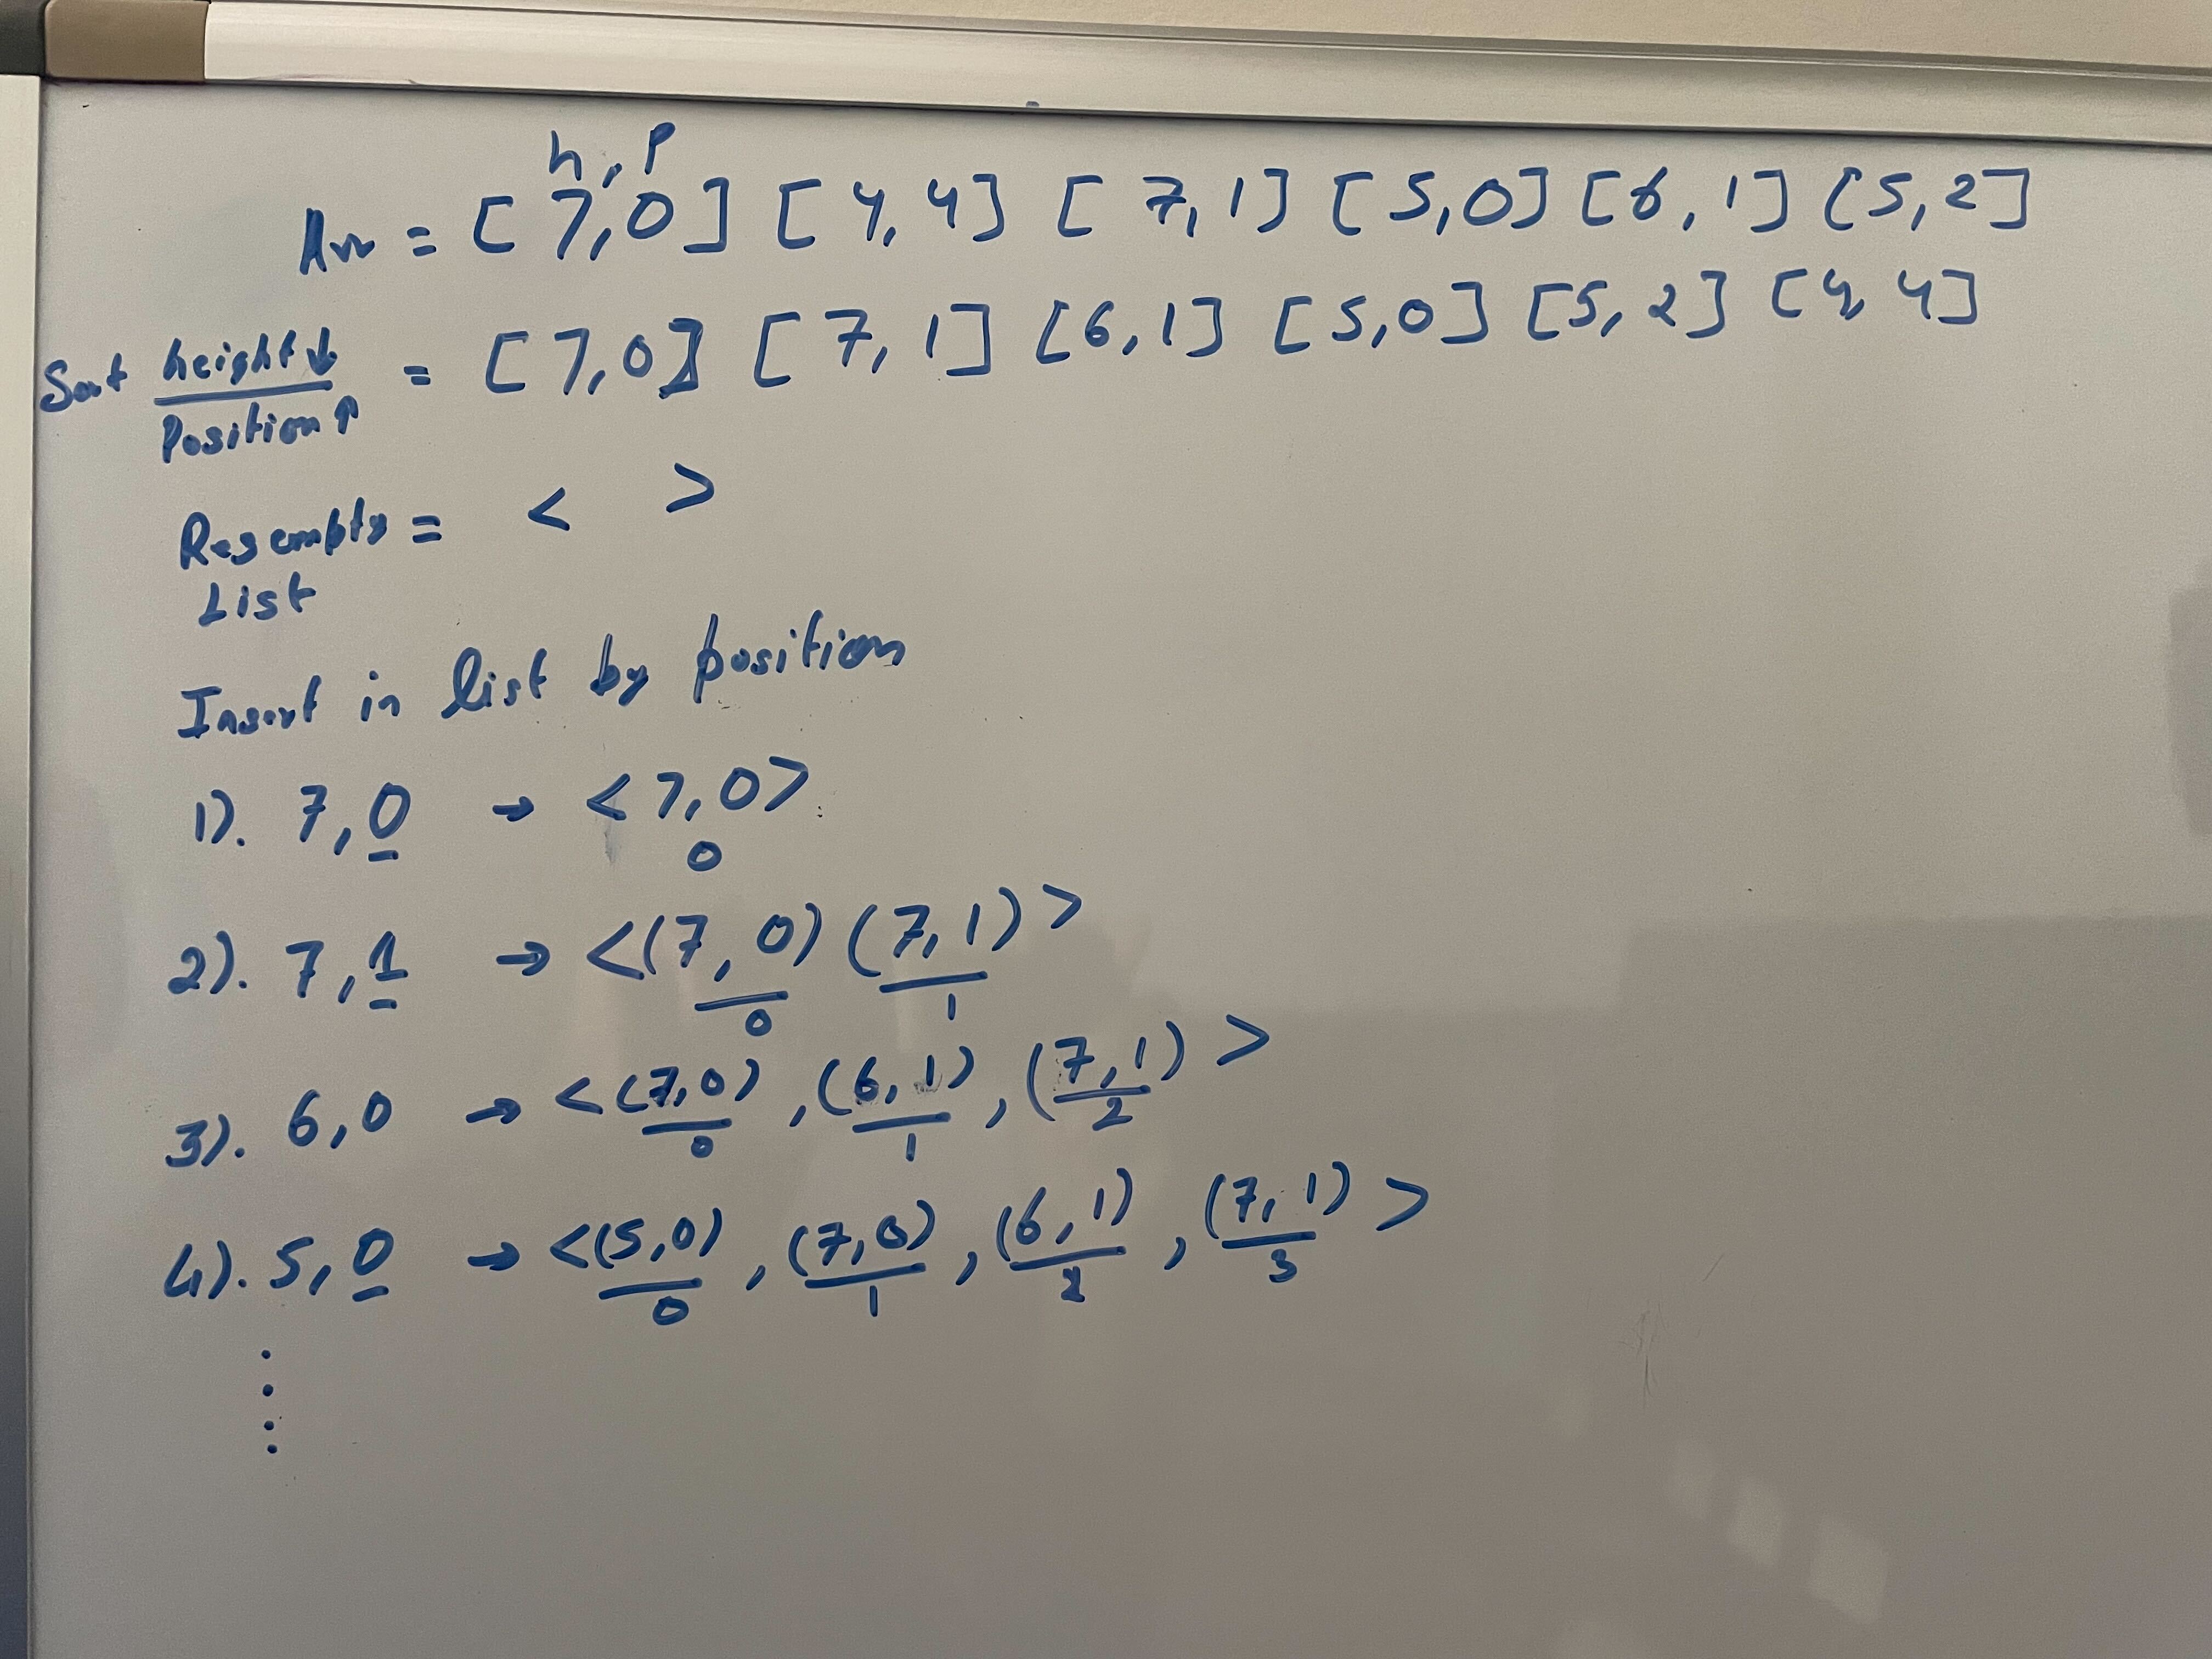 h, p
Arr = [7,0] [4,4] [7,1] [5,0] [6,1] [5,2]
Sort height↓ = [7,0] [7,1] [6,1] [5,0] [5,2] [4,4]
Position↑
= < >
List
Insert in list by position
1). 7,0 → <7,0>
0
2). 7,1 → <(7,0) (7,1)>
0 1
3). 6,0 → <(7,0), (6,1), (7,1)>
0 1 2
4). 5,0 → <(5,0), (7,0), (6,1), (7,1)>
0 1 2 3